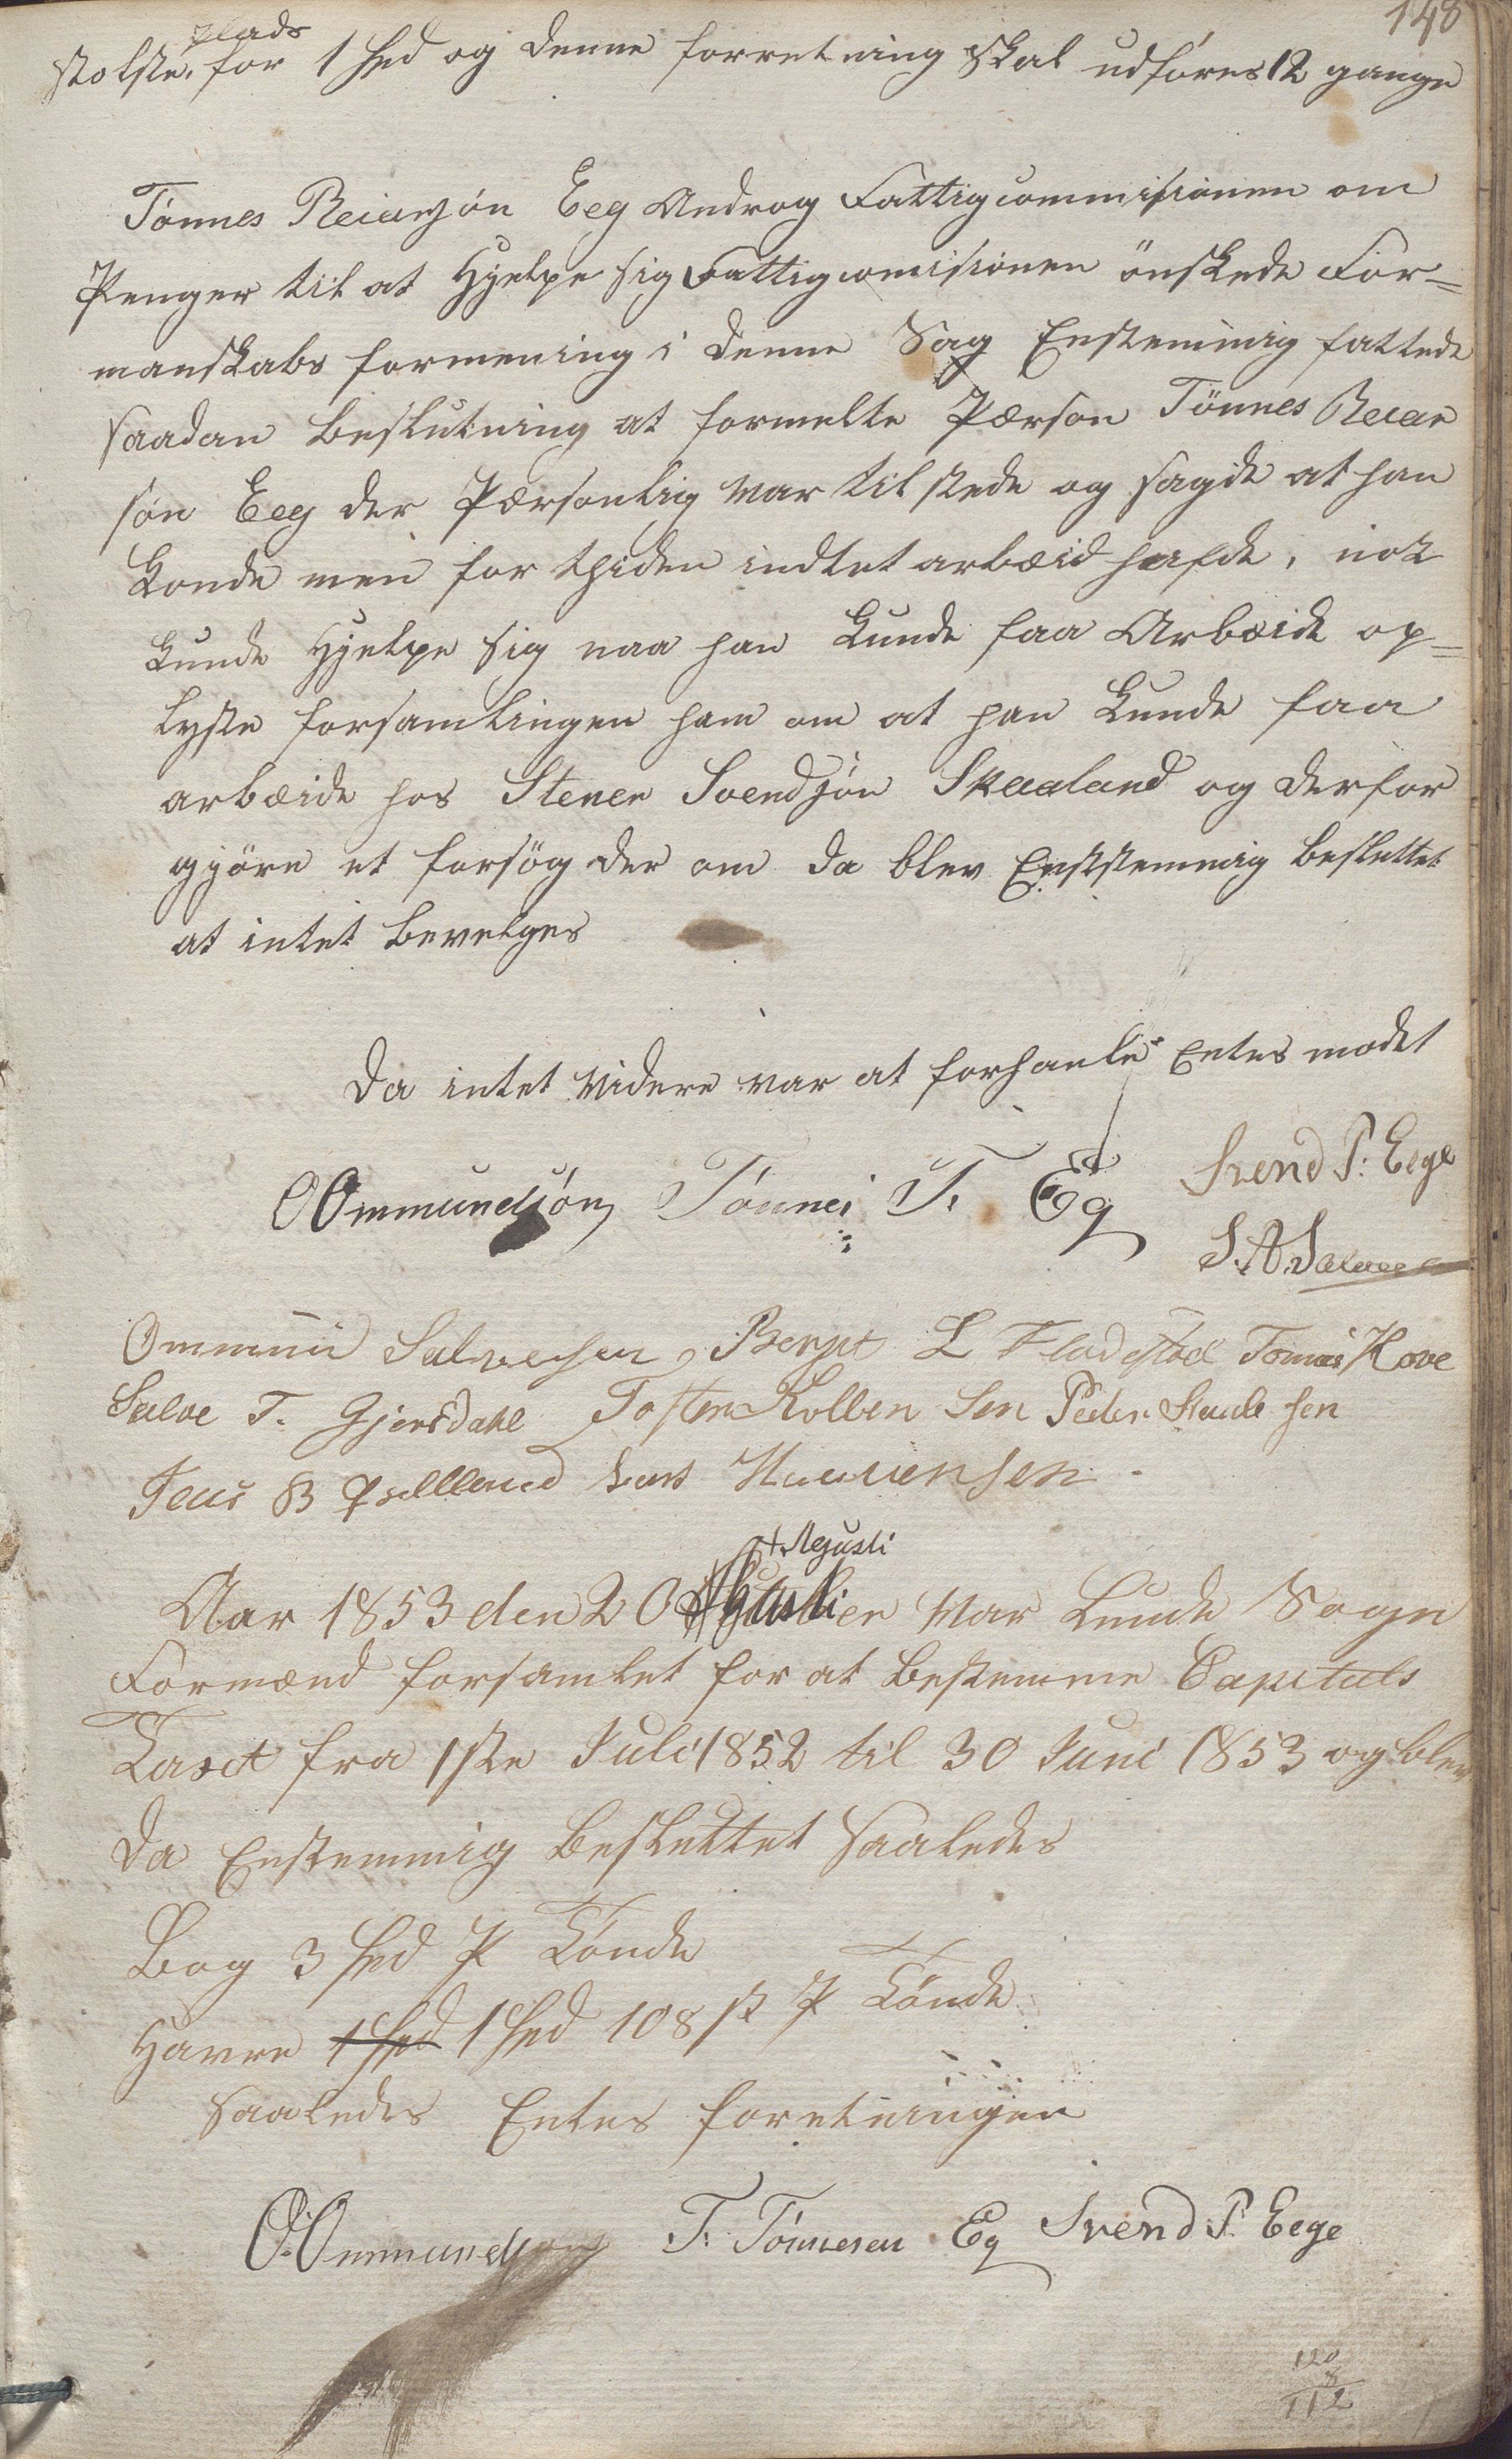 148
plads
stolste. for 1 Spd og denne forretning skal udføres 12 gange
Tønnes Reiersøn Eeg Androg Fattigcommisionen om
Penger til at Hjelpe sig Fattigcomisionen önskede For=
manskabs formening i denne Sag Enstemmig fattede
saadan Beslutning at formelte Pærson Tönnes Reier
søn Eeg der Pærsonlig var til stede og sagde at han
Konde men for thiden indtet arbæid hafde, nok
Kunde Hjelpe sig naa han Kunde faa Arbæide op=
lyste forsamlingen ham om at han Kunde faa
arbæide hos Stener Svendsøn Skaaland og derfor
gjöre et forsög der om da blev Enststemmig Besluttet
at intet Bevelges
Da intet Videre var at forhanle Entes modet
O Ommundsøn Tønnes T. Eg Svend P. Eege
S. A.
Ommun Salvesen Berge L Fladstad Tønnes Hove
Salve T. Gjersdahl Tosten Kolben Sen Peder Staale sen
B Lars
Agusti
Aar 1853 den 20 Agusti var Lunde Sogn
Formænd forsamlet for at Bestemme Capitals
Taxt fra 1ste Juli 1852 til 30 Juni 1853 og blev
Da Enstemmig Besluttet Saaledes
Bog 3 Spd P Tønde
Havre 1 Spd 1 Spd 108 s P Tønde
Saaledes Entes foretningen
O. Ommundsøn T. Tønnesen Eg Svend P. Eege
120
8
112